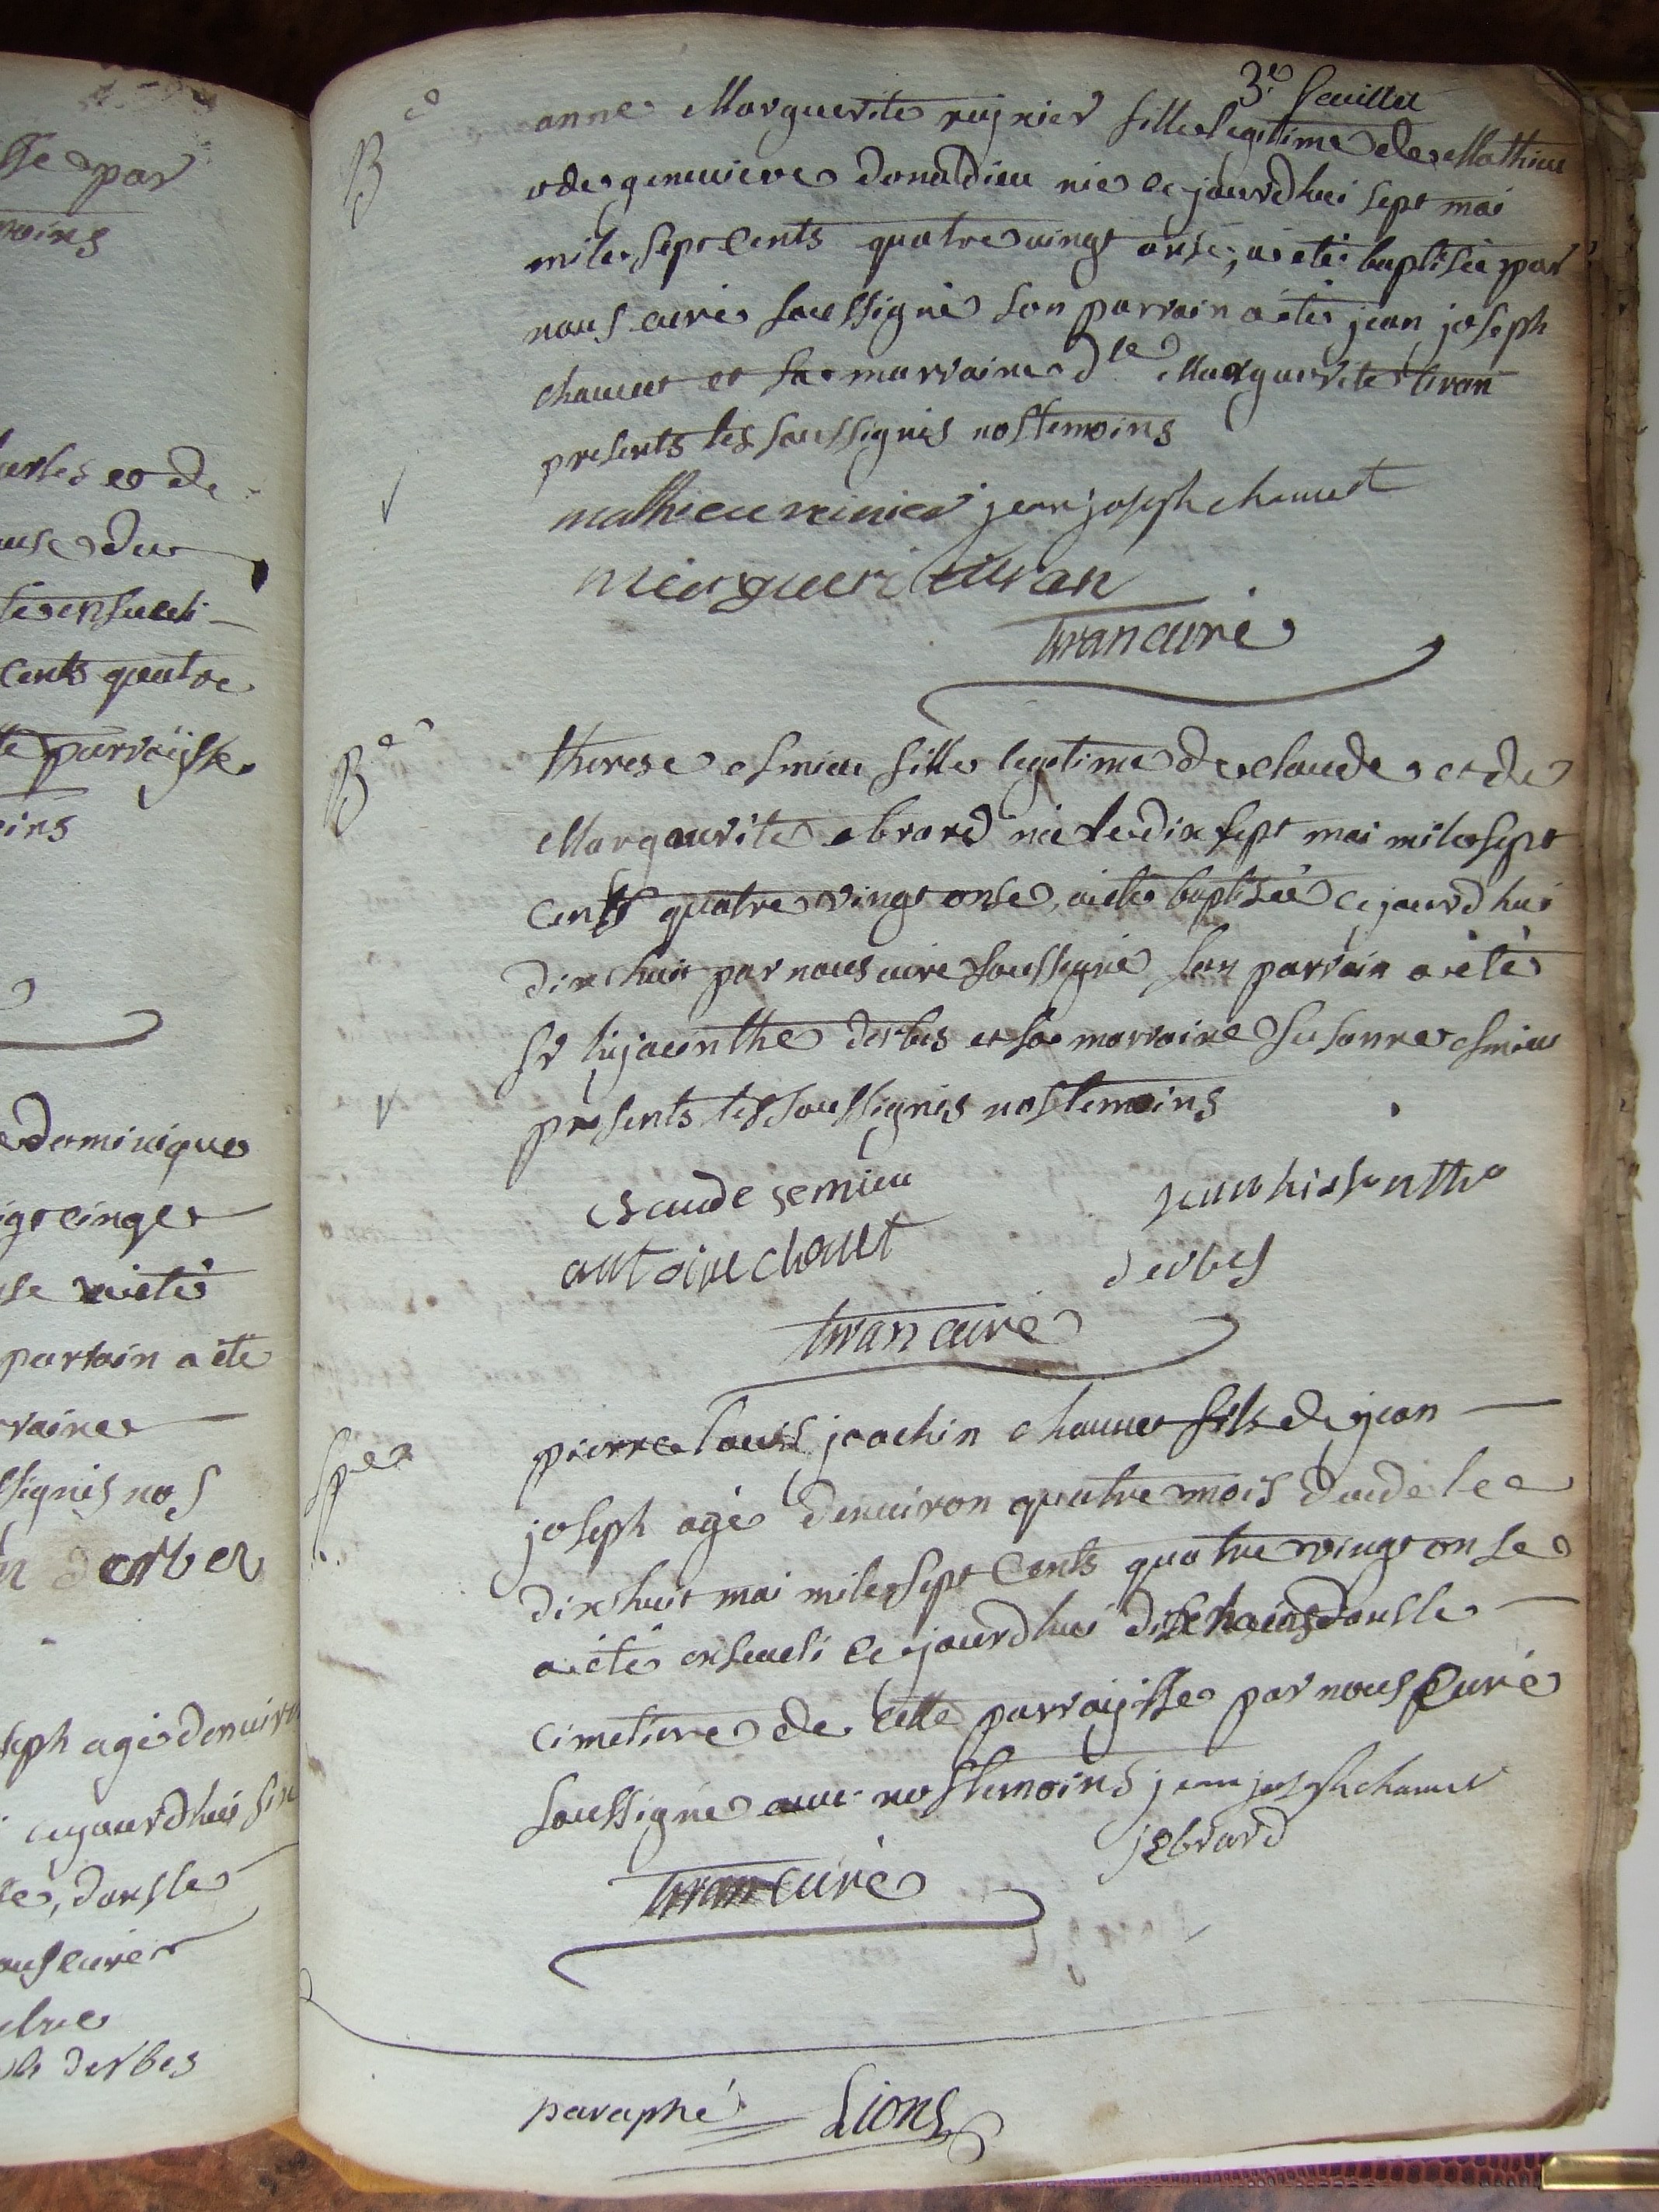 3.e feuillet
B e
anne Marguerite reynier fille legitime de Mathieu
et de genevieve donadieu née ce jourdhui sept mai
mile sept cents quatre vingt onse, a été baptisée par
nous curé soussigné son parrain a été jean joseph
chauvet et sa marraine dle Marguerite tiran
presents les soussignés nos temoins
mathieu reinier jean joseph chauvet
tiran
tiran curé
B e
therese esmieu fille legitime de claude et de
Marguerite ebrard née le dix sept mai mile sept
cents quatre vingt onse, a été baptisée ce jourdhui
dix huit par nous curé soussigné son parrain a été
sr hyacinthe derbes et sa marraine susanne esmieu
presents les soussignés nos temoins
claude semieu
antoine chauet
derbes
tiran curé
Spre
pierre louis joachin chauvet fils de jean
joseph agé denviron quatre mois decedé le
dix huit mai mile sept cents quatre vingt onse
a été enseveli ce jourdhui dans le
cimetiere de cette parroisse par nous curé
soussigné avec nos temoins jean joseph chauvet
j ebrard
tiran curé
paraphé Lions
sse par
moins
et de
ensuveli
cents quatre
parroisse
dominique
a été
parrain a été
ssignés nos
derbes
seph agé denviron
ce jourdhui six
dans le
nous curé
derbes